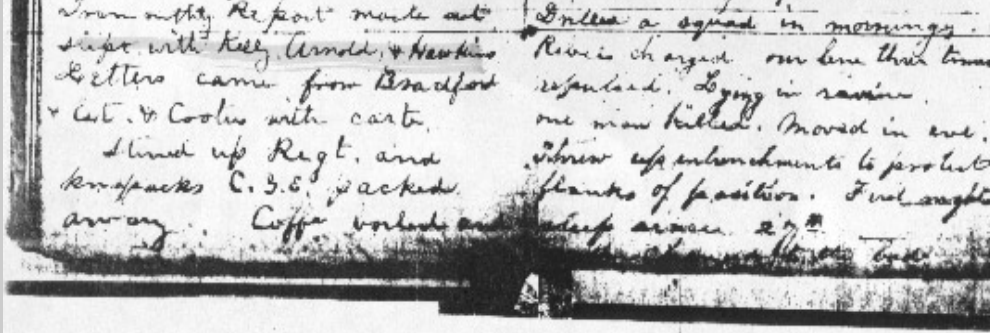 Report made out
slept with Kelly, Arnold, & Hawkins
Letters came from Bradford
with carte.
up Regt. and
knapsacks C. G. E. packed
away. Coffe boiled and
Drilled a squad in morning.
charged our line three times
repulsed. Lying in ravine.
one man killed. Moved in eve.
Threw up entrenchments to protect
flanks of position. First nights
sleep since 27th